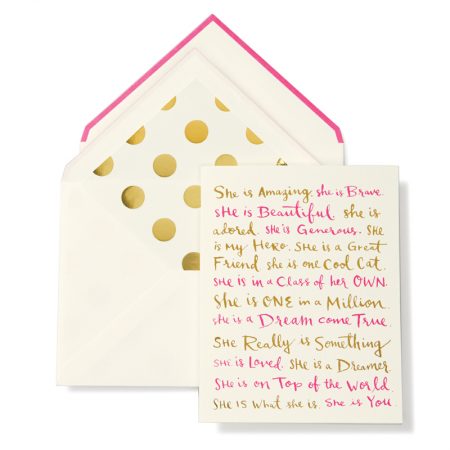 She is Amazing. she is Brave.
she is Beautiful. she is
adored. she is Generous. She
is my Hero. She is a Great
Friend. she is one Cool Cat.
She is in a Class of her OWN.
She is ONE in a Million.
she is a Dream come True.
She Really is Something
she is Loved. She is a Dreamer.
She is on Top of the World.
She is What she is. She is You.